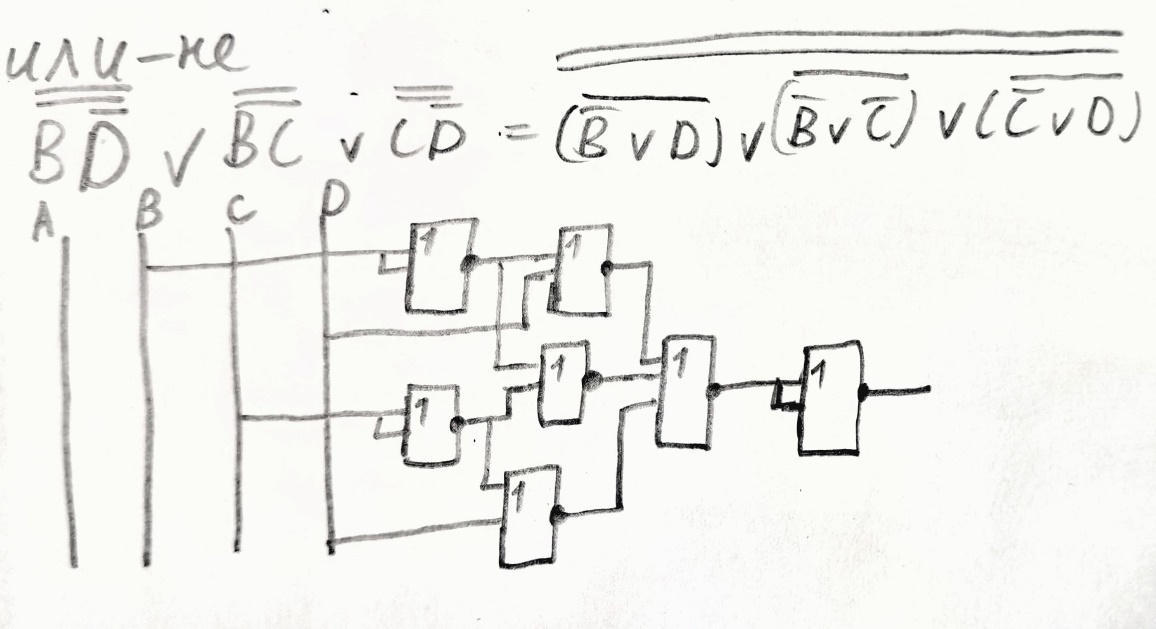 или-не
B̿D̿̅ ∨ B̿C̿ ∨ C̿D̿̅ = (B̅ ∨ D) ∨ (B̅ ∨ C̅) ∨ (C̅ ∨ D)
A B C D
1 1
1
1 1
1
1